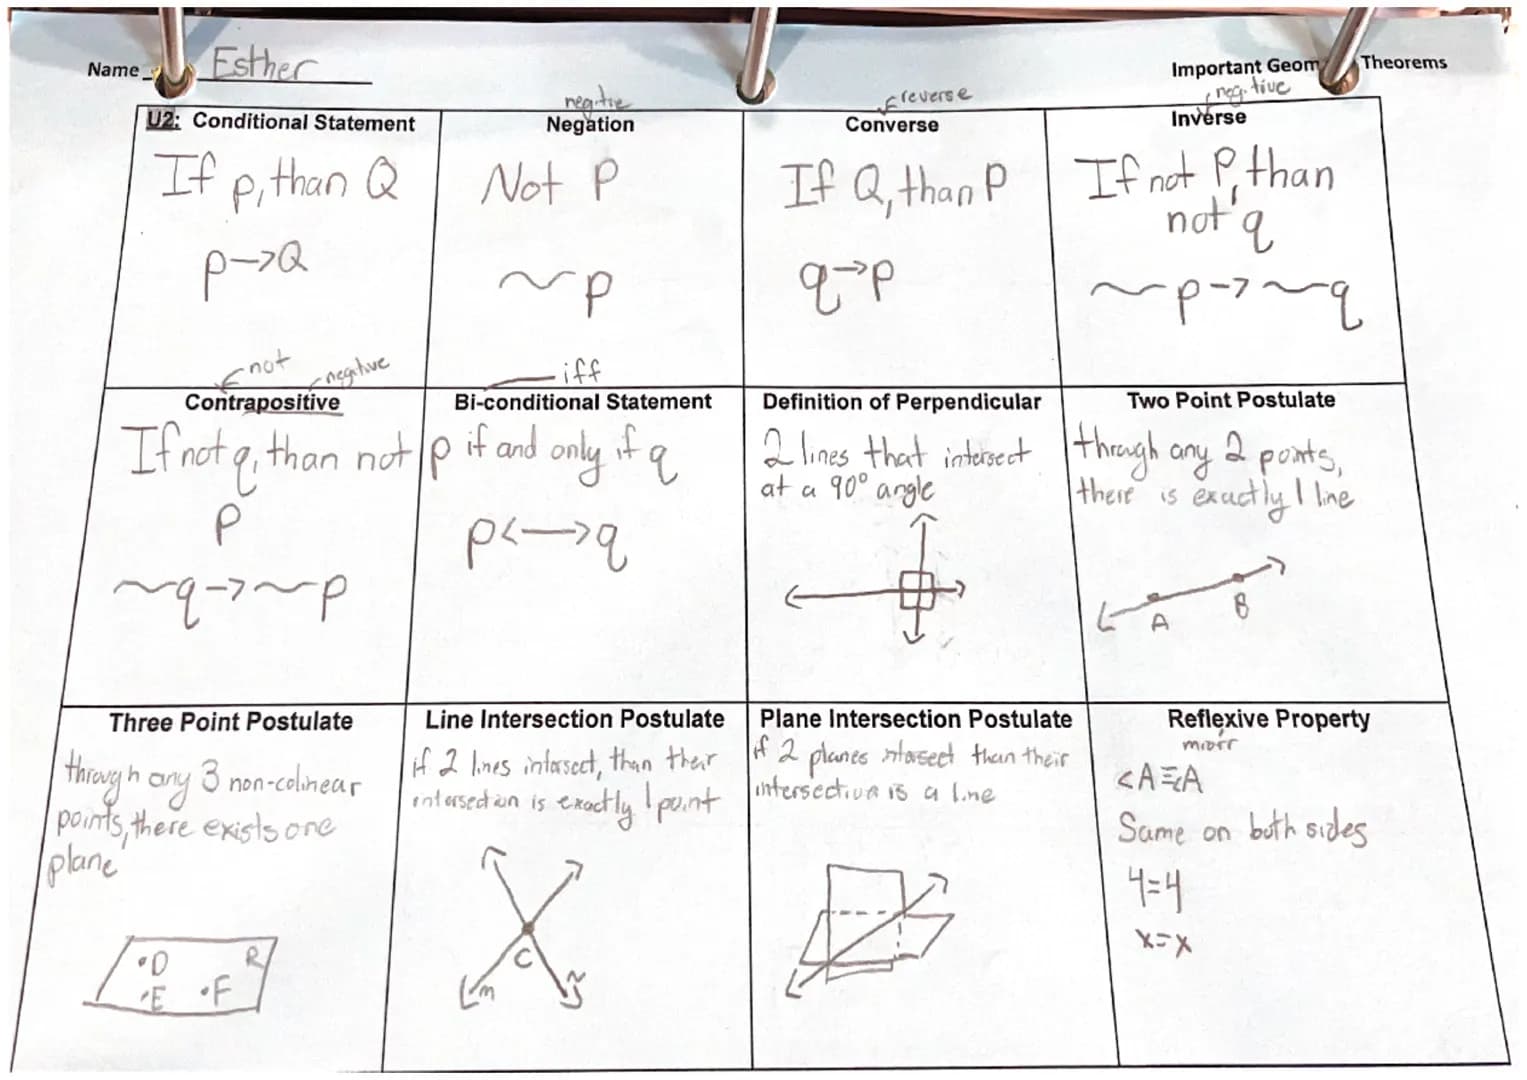 Name Esther
Important Geom Theorems
negitve
reverse
negitive
U2: Conditional Statement
If p, than Q
p→Q
Negation
Not P
~p
Converse
If Q, than P
q→p
Inverse
If not P, than
not q
~p→~q
not
negative
Contrapositive
If not q, than not
p
~q→~p
iff
Bi-conditional Statement
p if and only if q
p<—>q
Definition of Perpendicular
2 lines that intersect
at a 90° angle
Two Point Postulate
through any 2 points,
there is exactly 1 line
A
B
Three Point Postulate
through any 3 non-colinear
points, there exists one
plane
D
R
E
F
Line Intersection Postulate
if 2 lines intersect, than their
intersection is exactly 1 point
C
m
Plane Intersection Postulate
if 2 planes intersect than their
intersection is a line
Reflexive Property
<A≅<A
Same on both sides
4=4
x=x